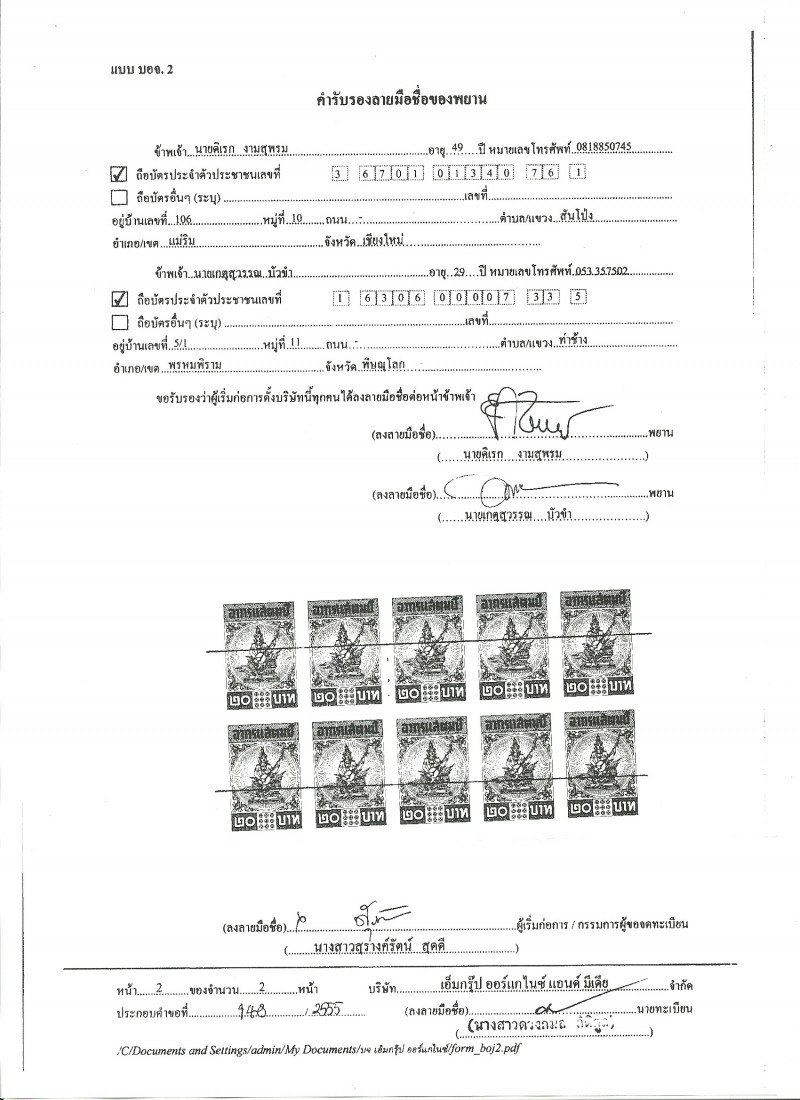 แบบ บอจ. 2
คำรับรองลายมือชื่อของพยาน
ข้าพเจ้า นายดิเรก งามสุพรม อายุ 49 ปี หมายเลขโทรศัพท์ 0818850745
ถือบัตรประจำตัวประชาชนเลขที่ 3 6701 01340 76 1
ถือบัตรอื่นๆ (ระบุ) เลขที่
อยู่บ้านเลขที่ 106 หมู่ที่ 10 ถนน - ตำบล/แขวง สันโป่ง
อำเภอ/เขต แม่ริม จังหวัด เชียงใหม่
ข้าพเจ้า นายเกตุสุวรรณ บัวขำ อายุ 29 ปี หมายเลขโทรศัพท์ 053.357502
ถือบัตรประจำตัวประชาชนเลขที่ 1 6306 00007 33 5
ถือบัตรอื่นๆ (ระบุ) เลขที่
อยู่บ้านเลขที่ 5/1 หมู่ที่ 11 ถนน - ตำบล/แขวง ท่าช้าง
อำเภอ/เขต พรหมพิราม จังหวัด พิษณุโลก
ขอรับรองว่าผู้เริ่มก่อการตั้งบริษัทนี้ทุกคนได้ลงลายมือชื่อต่อหน้าข้าพเจ้า
(ลงลายมือชื่อ) พยาน
( นายดิเรก งามสุพรม )
(ลงลายมือชื่อ) พยาน
( นายเกตุสุวรรณ บัวขำ )
อากรแสตมป์ อากรแสตมป์ อากรแสตมป์ อากรแสตมป์ อากรแสตมป์
๒๐ บาท ๒๐ บาท ๒๐ บาท ๒๐ บาท ๒๐ บาท
อากรแสตมป์ อากรแสตมป์ อากรแสตมป์ อากรแสตมป์ อากรแสตมป์
๒๐ บาท ๒๐ บาท ๒๐ บาท ๒๐ บาท ๒๐ บาท
(ลงลายมือชื่อ) ผู้เริ่มก่อการ / กรรมการผู้ขอจดทะเบียน
( นางสาวสุรางค์รัตน์ สุดดี )
หน้า 2 ของจำนวน 2 หน้า บริษัท เอ็มกรุ๊ป ออร์แกไนซ์ แอนด์ มีเดีย จำกัด
ประกอบคำขอที่ 948 / 2555 (ลงลายมือชื่อ) นายทะเบียน
/C/Documents and Settings/admin/My Documents/บจ เอ็มกรุ๊ป ออร์แกไนซ์/form_boj2.pdf